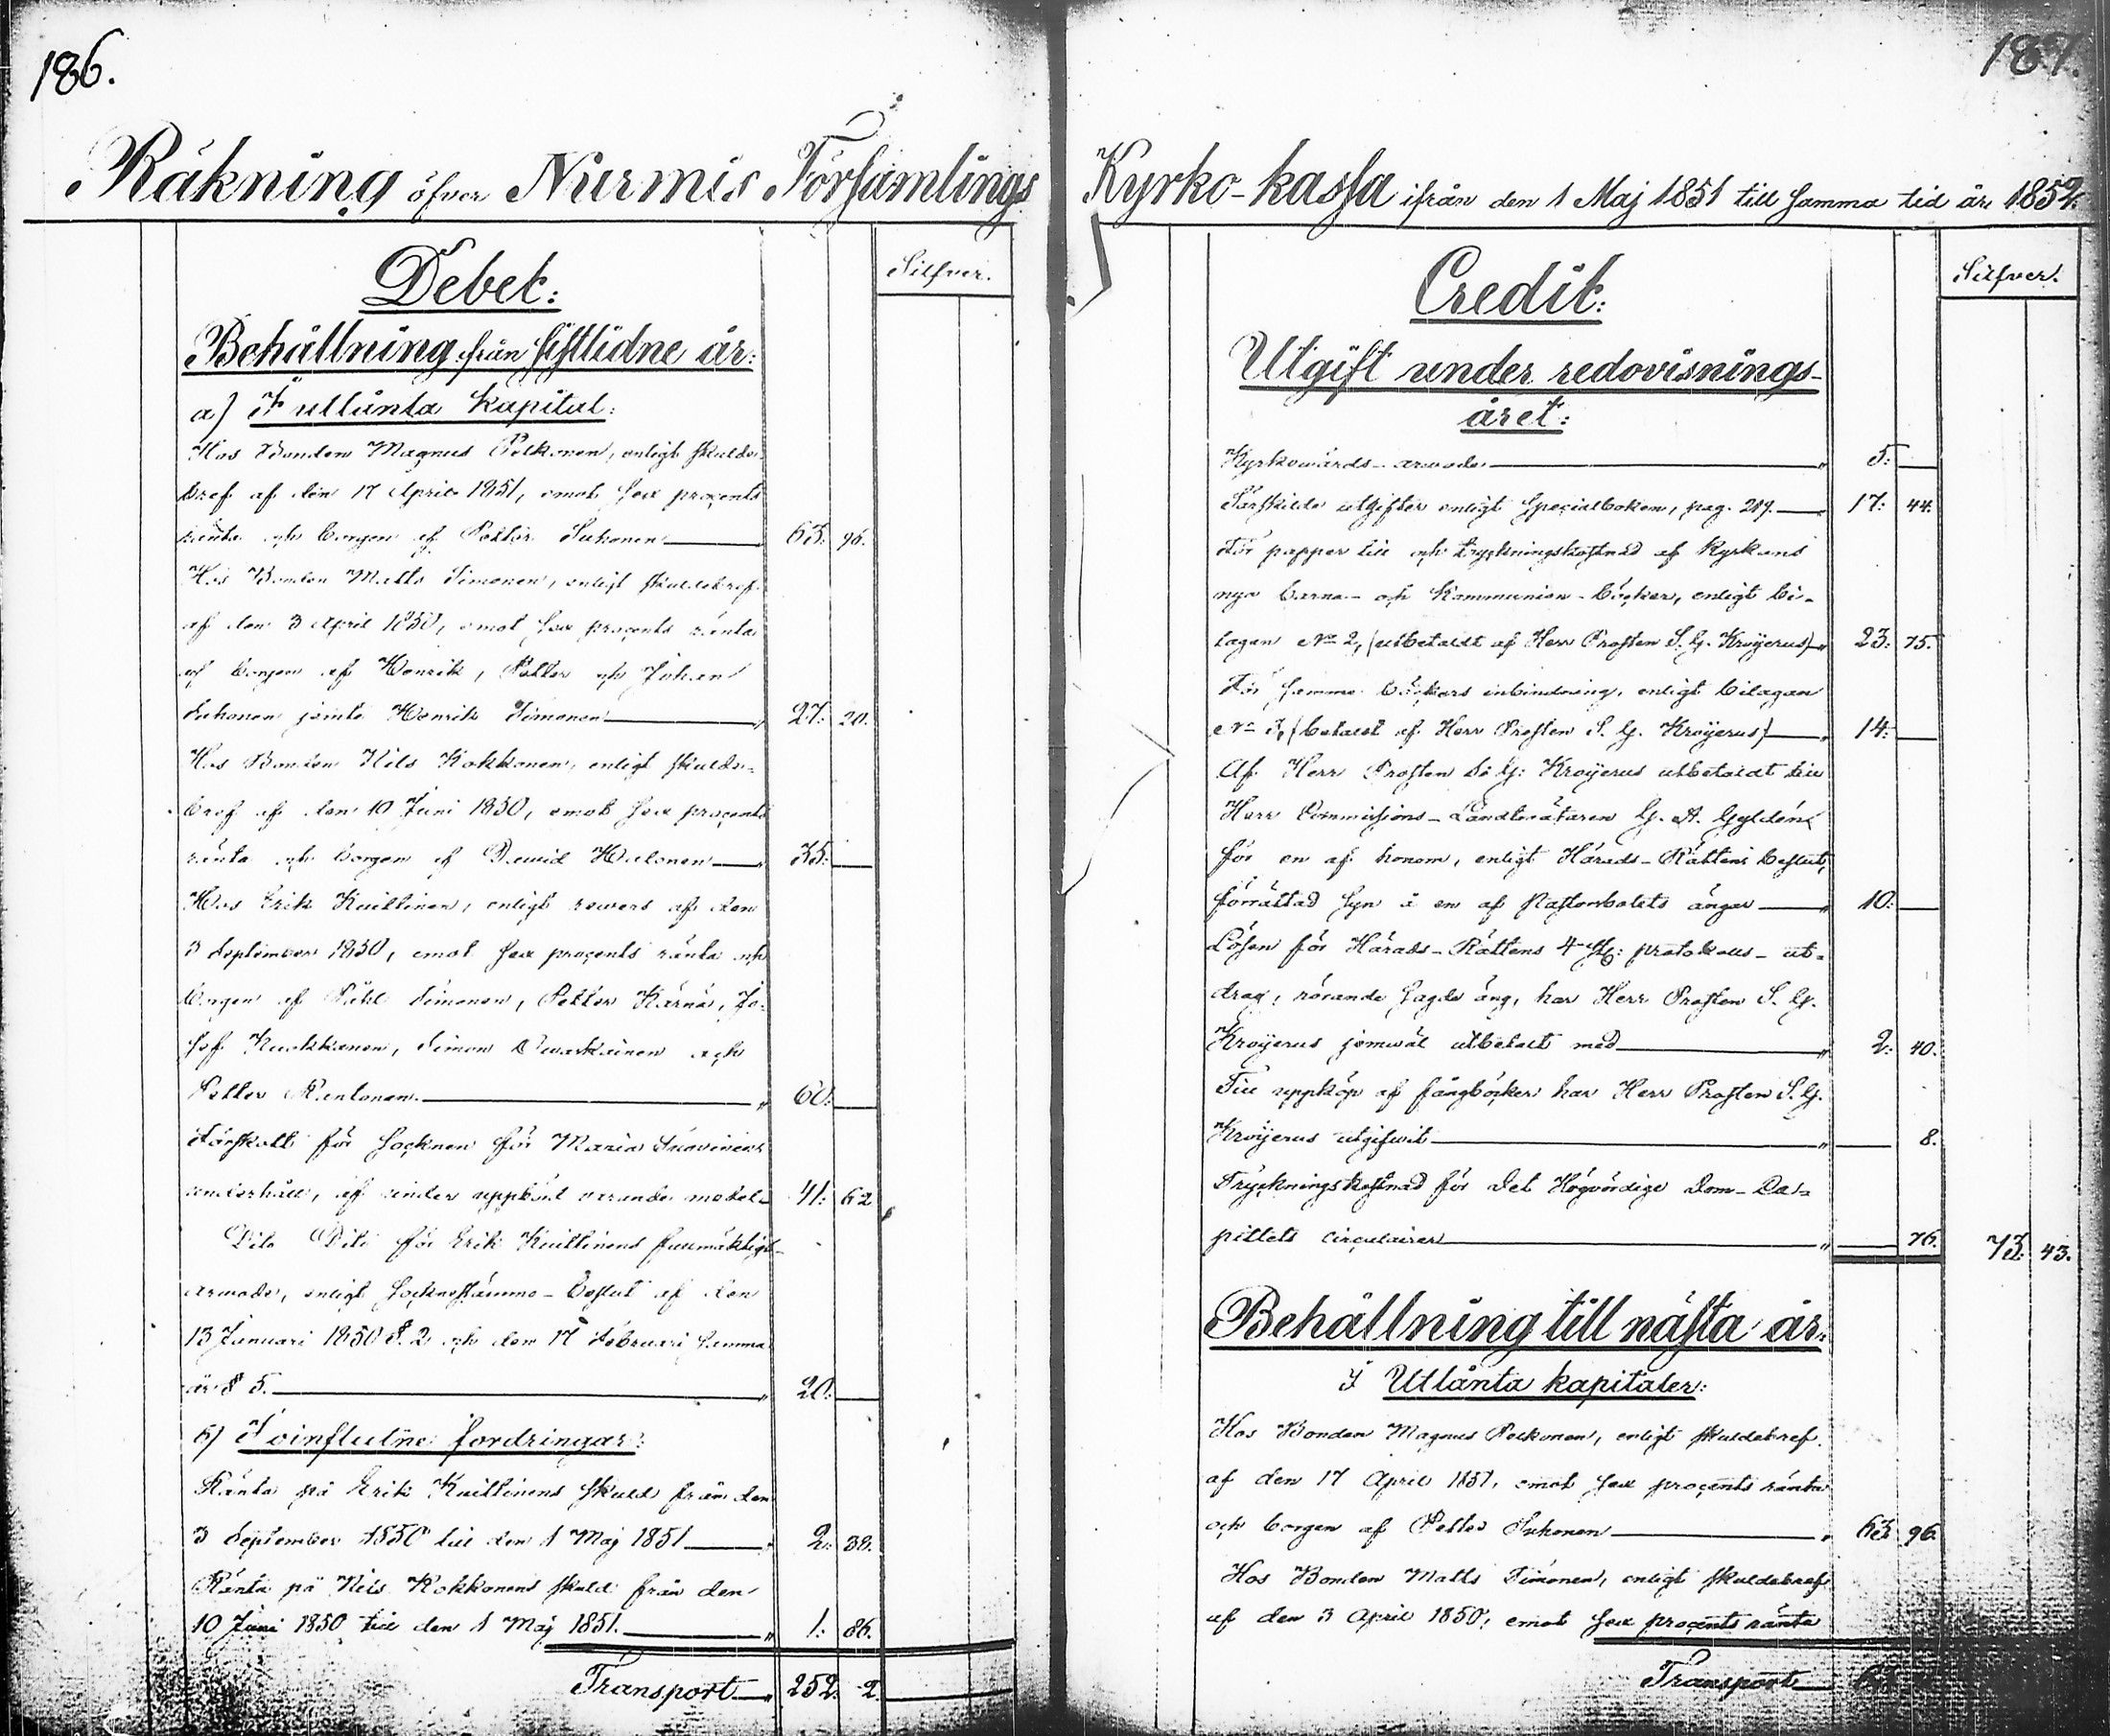 186.
Räkning öfver Nurmis Församlings
Debet:
Silfver.
Behållning från sistlidne år:
a) I utlånta kapital:
Hos Bonden Magnus Pelkonen, enligt skulde-
bref af den 17 April 1851, emot sex procents
ränta och borgen af Petter Suhonen 63: 96.
Hos Bonden Matts Timonen, enligt skuldebref
af den 3 April 1850, emot sex procents ränta
och borgen af Henrik, Petter och Johan
Suhonen jemte Henrik Timonen " 27: 20.
Hos Bonden Nils Kokkonen, enligt skulde-
bref af den 10 Juni 1850, emot sex procents
ränta och borgen af David " 35:
Hos Erik Kuittinen, enligt revers af den
3 September 1850, emot sex procents ränta och
borgen af Timonen, Petter Kärnä, Jo-
sef Kuokkanen, Simon och
Petter " 60:
Förskott för Socknen för Maria
underhåll, af under uppbörd varande medel " 41: 62
Dito Dito för Erik Kuittinens fullmäktige-
arvode, enligt Sockenstämmo-beslut af den
13 Januari 1850 §. 2 och den 17 Februari samma
år § 5. " 20:
b) I oinflutne fordringar:
Ränta på Erik Kuittinens skuld från den
3 September 1850 till den 1 Maj 1851 " 2: 38.
Ränta på Nils Kokkonens skuld från den
10 Juni 1850 till den 1 Maj 1851. " 1: 86.
Transport " 252. 2
187.
Kyrko-kassa ifrån den 1 Maj 1851 till samma tid år 1852.
Credit:
Silfver.
Utgift under redovisnings-
året:
Kyrkowärds-arwode " 5:
Särskilde utgifter enligt Specialboken, pag. 217. " 17: 44.
För papper till och tryckningskostnad af Kyrkans
nya barna- och Kommunion-böcker, enligt bi-
lagan No 2, (utbetaldt af Herr Prosten S. G. Kroÿerus) " 23: 75.
För samma böckers inbindning, enligt bilagan
No 3, (betaldt af Herr Prosten S. G. Kroÿerus) " 14:
Af Herr Prosten S: G: Kroÿerus utbetaldt till
Herr Commissions-Landtmätaren G. A. Gyldén
för en af honom, enligt Härads-Rättens beslut,
förrättad Syn å en af Pastorsbolets ängar " 10:
Lösen för Härads-Rättens 4 protokolls-ut-
drag, rörande sagde äng, har Herr Prosten S. G.
Kroÿerus jemwäl utbetalt med " 2: 40.
Till uppköp af fångböcker har Herr Prosten S. G.
Kroÿerus utgifwit " 8.
Tryckningskostnad för det Högvördige Dom-Ca-
pitlets circulairer " 76. 73: 43.
Behållning till nästa år:
I Utlånta kapitaler:
Hos Bonden Magnus Pelkonen, enligt skuldebref
af den 17 April 1851, emot sex procents ränta
och borgen af Petter Suhonen " 63 96.
Hos Bonden Matts Timonen, enligt skuldebref
af den 3 April 1850, emot sex procents ränta
Transport